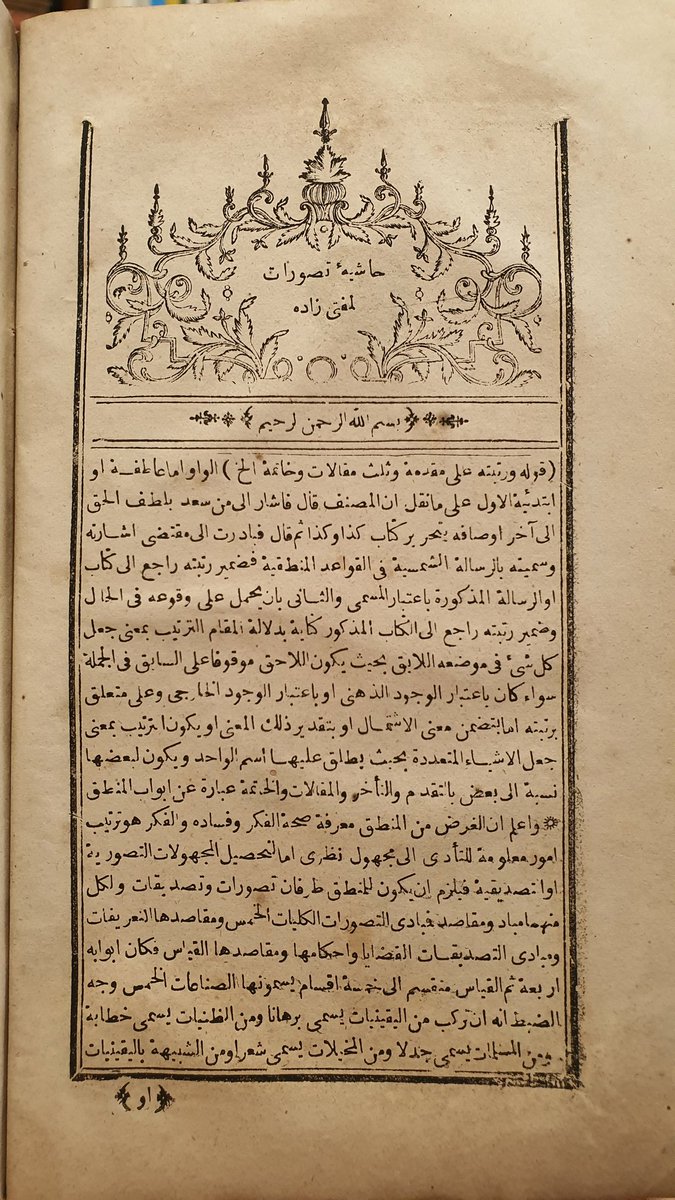 حاشيهٔ تصورات
لمفتى زاده
بسم الله الرحمن لرحيم
(قوله ورتبته على مقدمة وثلث مقالات وخاتمة الخ) الواو اما عاطفة او
ابتدئية الاول على مانقل ان المصنف قال فاشار الى من سعد بلطف الحق
الى آخر اوصافه بتحرير كتاب كذا وكذا ثم قال فبادرت الى مقتضى اشارته
وسميته بالرسالة الشمسية فى القواعد المنطقية فضمير رتبته راجع الى كتاب
او الرسالة المذكورة باعتبار المسمى والثانى بان يحمل على وقوعه فى الحال
وضمير رتبته راجع الى الكتاب المذكور كناية بدلالة المقام الترتيب بمعنى جعل
كل شئ فى موضعه اللايق بحيث يكون اللاحق موقوفا على السابق فى الجملة
سواء كان باعتبار الوجود الذهنى او باعتبار الوجود الخارجى وعلى متعلق
برتبته اما بتضمن معنى الاشتمال او بتقدير ذلك المعنى او يكون الترتيب بمعنى
جعل الاشياء المتعددة بحيث يطلق عليها اسم الواحد ويكون لبعضها
نسبة الى بعض بالتقدم والتأخر والمقالات والخاتمة عبارة عن ابواب المنطق
واعلم ان الغرض من المنطق معرفة صحة الفكر وفساده والفكر هو ترتيب
امور معلومة للتأدى الى مجهول نظرى اما لتحصيل المجهولات التصورية
او التصديقية فيلزم ان يكون للمنطق طرفان تصورات وتصديقات ولكل
منهما مباد ومقاصد فبادى التصورات الكليات الخمس ومقاصدها التعريفات
ومبادى التصديقات القضايا واحكامها ومقاصدها القياس فكان ابوابه
اربعة ثم القياس منقسم الى خمسة اقسام يسمونها الصناعات الخمس وجه
الضبط انه ان تركب من اليقينيات يسمى برهانا ومن الظنيات يسمى خطابة
ومن المسلمات يسمى جدلا ومن المخيلات يسمى شعرا ومن الشبيهة باليقينيات
او